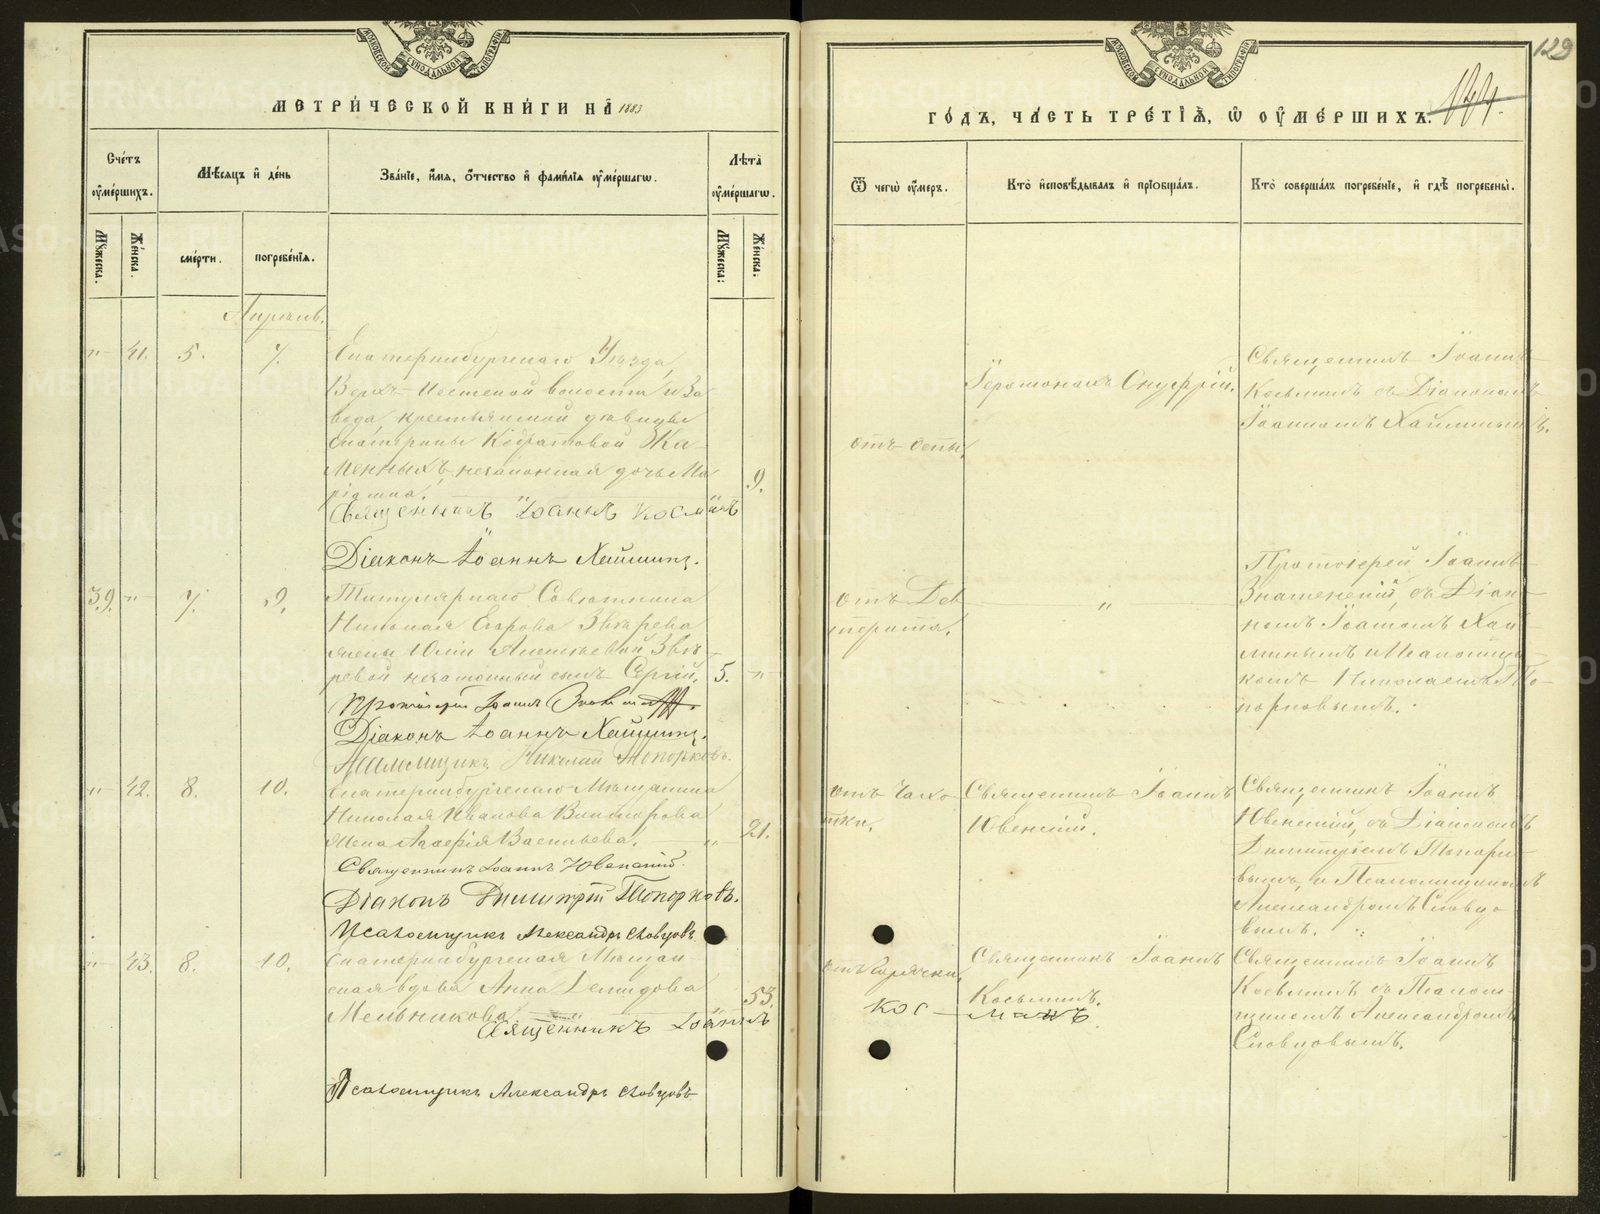 МЕТРИ́ЧЕСКОЙ КНИ́ГИ НА̀ 1883
Сче́тъ ᲂу҆ме́ршихъ.
Мѣ́сяцъ и҆ де́нь
Зва́нїе, и҆́мя, ѻ҆́тчество и҆ фами́лїя ᲂу҆ме́ршагѡ.
Лѣта̀ ᲂу҆ме́ршагѡ.
Мꙋ́жеска.
Же́нска.
сме́рти.
погребе́нїя.
Мꙋ́жеска:
Же́нска:
Апрѣль.
"
41.
5.
7.
Екатеринбургскаго Уѣзда,
Верхъ-Исетской волости и За
вода, крестьянской дѣвицы
Екатерины Кодратовой Ка
менныхъ, незаконная дочь Ма
рiамна.
9.
Священникъ Іоаннъ Косминъ
Дiаконъ Іоаннъ Хайминъ.
39.
"
7.
9.
Титулярнаго Совѣтника
Николая Егорова Звѣрева
жены Юлiи Алексѣевой Звѣ
ревой незаконный сынъ Сергiй.
5.
"
Протоіерей Іоаннъ
Дiаконъ Іоаннъ Хайминъ.
Псаломщикъ Николай Топорковъ.
"
42.
8.
10.
Екатеринбургскаго Мѣщанина
Николая Иванова Винокурова
жена Васильева.
"
21.
Священникъ Іоаннъ Ювенскiй.
Дiаконъ Димитрiй Топорковъ.
Псаломщикъ Александръ Словцовъ
"
43.
8.
10.
Екатеринбургская Мѣщан
ская вдова Анна Демидова
Мельникова
53.
Священникъ Іоаннъ
Псаломщикъ Александръ Словцовъ
129
ГО́ДЪ, ЧА́СТЬ ТРЕ́ТЇѦ, Ѡ҆ ОУ҆МЕ́РШИХЪ.
Ѿ чегѡ̀ ᲂу҆́меръ.
Кто̀ и҆сповѣ́дывалъ и҆ прїѻбща́лъ.
Кто̀ соверша́лъ погребе́нїе, и҆ гдѣ̀ погребены̀.
отъ оспы.
Іеромонахъ Онуфрiй.
Священникъ Іоаннъ
Косьминъ съ Дiакономъ
Іоанномъ Хайминымъ.
отъ Диф
терита.
"
Протоіерей Іоаннъ
Знаменскiй, съ Дiако
номъ Іоанномъ Хай
минымъ и Псаломщи
комъ Николаемъ То
порковымъ.
отъ Чахо
тки.
Священникъ Іоаннъ
Ювенскiй.
Священникъ Іоаннъ
Ювенскiй, съ Дiакономъ
Димитрiемъ Топорко
вымъ, и Псаломщикомъ
Александромъ Словцо
вымъ.
отъ Горячки.
Священникъ Іоаннъ
Косьминъ.
Кос — минъ
Священникъ Іоаннъ
Косьминъ съ Псалом
щикомъ Александромъ
Словцовымъ.